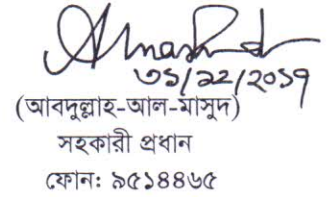 ৩১/১২/২০১৭
(আবদুল্লাহ-আল-মাসুদ)
সহকারী প্রধান
ফোন: ৯৫১৪৪৬৫